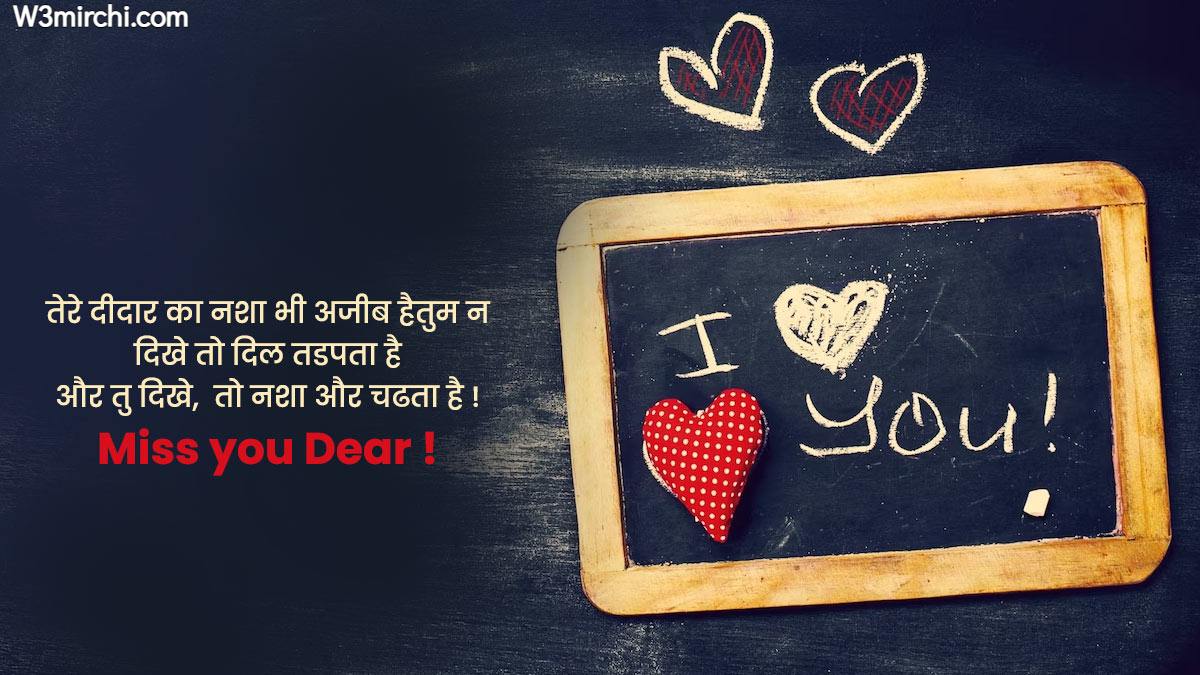 W3mirchi.com
तेरे दीदार का नशा भी अजीब हैतुम न
दिखे तो दिल तडपता है
और तु दिखे,  तो नशा और चढता है !
Miss you Dear !
I
You!